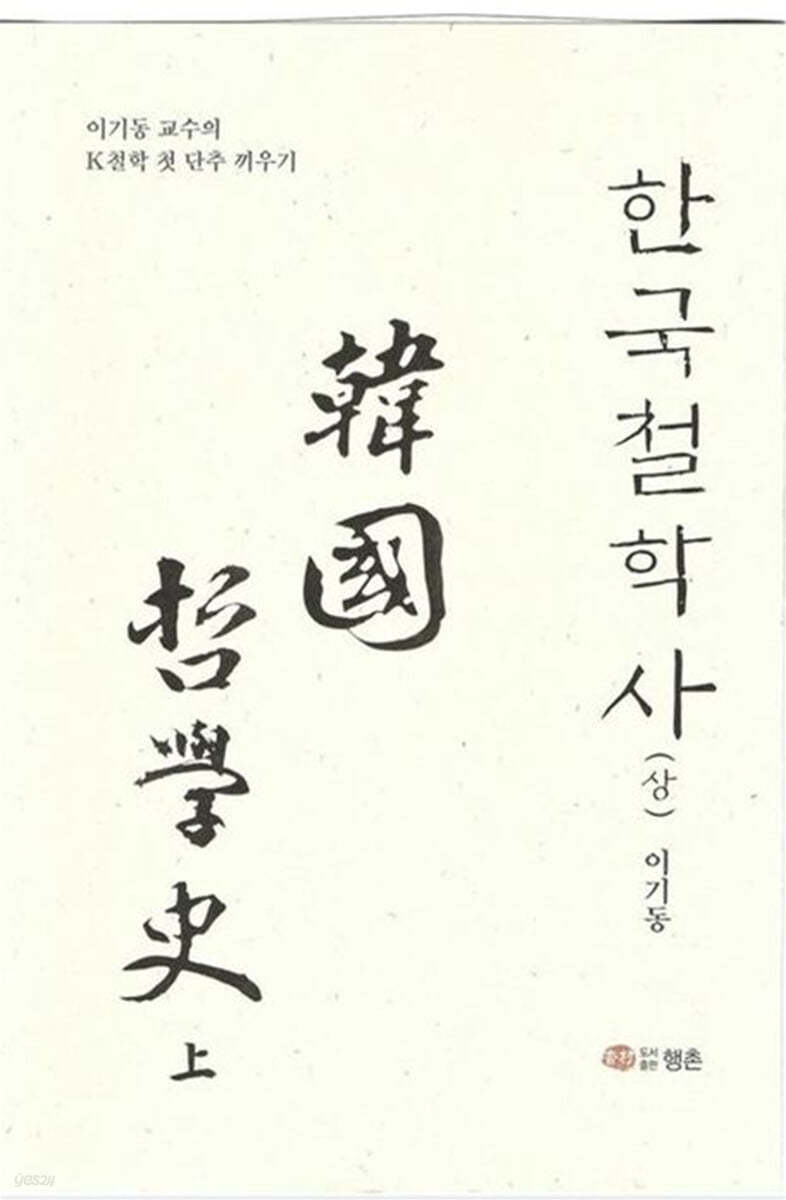 이기동 교수의
K철학 첫 단추 끼우기
한국철학사(상) 이기동
韓國
哲學史 上
도서
출판
행촌
yes24